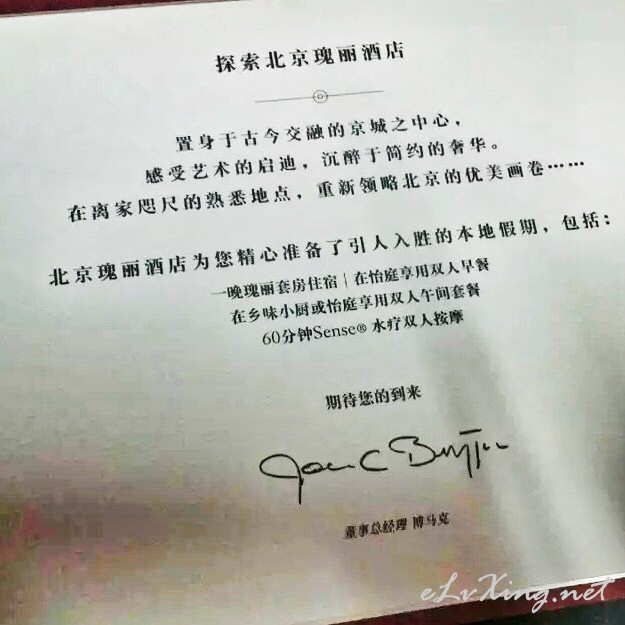 探索北京瑰丽酒店
置身于古今交融的京城之中心，
感受艺术的启迪，沉醉于简约的奢华。
在离家咫尺的熟悉地点，重新领略北京的优美画卷……
北京瑰丽酒店为您精心准备了引人入胜的本地假期，包括：
一晚瑰丽套房住宿 | 在怡庭享用双人早餐
在乡味小厨或怡庭享用双人午间套餐
60分钟Sense® 水疗双人按摩
期待您的到来
董事总经理 博马克
eLvXing.net